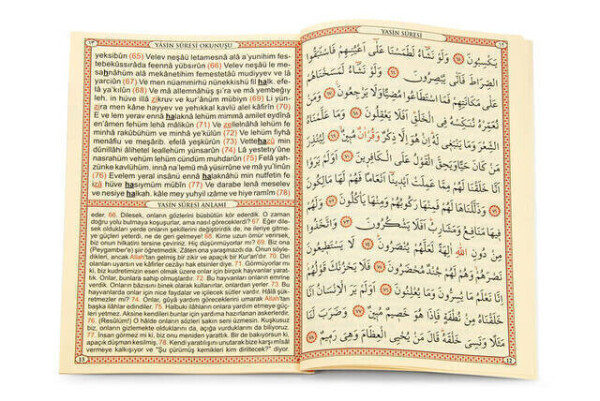 YASİN SÛRESİ OKUNUŞU
yeksibûn (65) Velev neşâü letamesnâ alâ a'yunihim fes-
tebekussırâda feennâ yübsirûn (66) Velev neşâü le me-
sahnâhüm alâ mekânetihim femestetâû mudiyyev ve lâ
yarciûn (67) Ve men nüammirhü nünekkishü fil halk. efe-
lâ ya'kılûn (68) Ve mâ allemnâhüş şi'ra ve mâ yembeğıy
leh. in hüve illâ zikruv ve kur'ânüm mübiyn (69) Li yün-
zira men kâne hayyev ve yehıkkal kavlü alel kâfirîn (70)
E ve lem yerav ennâ halaknâ lehüm mimmâ amilet eydînâ
en'âmen fehüm lehâ mâlikûn (71) Ve zellelnâhâ lehüm fe
minhâ rakûbühüm ve minhâ ye'külûn (72) Ve lehüm fîyhâ
menâfiu ve meşârib. efelâ yeşkürûn (73) Vettehazû min
dûnillâhi âlihetel leallehüm yünsarûn (74) Lâ yestetıy'ûne
nasrahüm vehüm lehüm cündüm muhdarûn (75) Felâ yah-
zünke kavlühüm. innâ na'lemü mâ yüsirrûne ve mâ yu'linûn
(76) Evelem yeral insânü ennâ halaknâhü min nutfetin fe
izâ hüve hasıymüm mübîn (77) Ve darabe lenâ meselev
ve nesiye halkah. kâle mey yuhyil ızâme ve hiye ramîm (78)
YASİN SÛRESİ ANLAMI
eder. 66. Dilesek, onların gözlerini büsbütün kör ederdik. O zaman
doğru yolu bulmaya koşuşurlar, ama nasıl göreceklerdi? 67. Eğer dile-
sek oldukları yerde onların şekillerini değiştirirdik de, ne ileriye gitme-
ye güçleri yeterdi ne geri gelmeye! 68. Kime uzun ömür verirsek,
biz onun hilkatini tersine çeviririz. Hiç düşünmüyorlar mı? 69. Biz ona
(Peygamber'e) şiir öğretmedik. Zâten ona yaraşmazdı da. Onun söyle-
dikleri, ancak Allah'tan gelmiş bir zikir ve apaçık bir Kur'an'dır. 70. Diri
olanları uyarsın ve kâfirler cezâyı hak etsinler diye. 71. Görmüyorlar mı
ki, biz kudretimizin eseri olmak üzere onlar için birçok hayvanlar yarat-
tık. Onlar, bunlara sahip olmuşlardır. 72. Bu hayvanları onların emrine
verdik. Onların bâzısını binek olarak kullanırlar, onlardan yerler. 73. Bu
hayvanlarda onlar için nice faydalar ve içilecek sütler vardır. Hâlâ şük-
retmezler mi? 74. Onlar, güyâ yardım göreceklerini umarak Allah'tan
başka ilâhlar edindiler. 75. Halbuki ilâhların onlara yardım etmeye güç-
leri yetmez. Aksine kendileri bunlar için yardıma hazırlanan askerlerdir.
76. (Resûlüm!) O hâlde onların sözleri sakın seni üzmesin. Kuşkusuz
biz, onların gizlemekte olduklarını da, açığa vurduklarını da biliyoruz.
77. İnsan görmez mi ki, biz onu meniden yarattık. Bir de bakıyorsun ki,
apaçık düşman kesilmiş. 78. Kendi yaratılışını unutarak bize karşı misâl
vermeye kalkışıyor ve "Şu çürümüş kemikleri kim diriltecek?" diyor.
YASİN SÛRESİ
يَكْسِبُونَ ﴿٦٥﴾ وَلَوْ نَشَاءُ لَطَمَسْنَا عَلَى أَعْيُنِهِمْ فَاسْتَبَقُوا
الصِّرَاطَ فَأَنَّى يُبْصِرُونَ ﴿٦٦﴾ وَلَوْ نَشَاءُ لَمَسَخْنَاهُمْ
عَلَى مَكَانَتِهِمْ فَمَا اسْتَطَاعُوا مُضِيًّا وَلَا يَرْجِعُونَ ﴿٦٧﴾ وَمَنْ
نُعَمِّرْهُ نُنَكِّسْهُ فِي الْخَلْقِ أَفَلَا يَعْقِلُونَ ﴿٦٨﴾ وَمَا عَلَّمْنَاهُ
الشِّعْرَ وَمَا يَنْبَغِي لَهُ إِنْ هُوَ إِلَّا ذِكْرٌ وَقُرْآنٌ مُبِينٌ ﴿٦٩﴾ لِيُنْذِرَ
مَنْ كَانَ حَيًّا وَيَحِقَّ الْقَوْلُ عَلَى الْكَافِرِينَ ﴿٧٠﴾ أَوَلَمْ يَرَوْا
أَنَّا خَلَقْنَا لَهُمْ مِمَّا عَمِلَتْ أَيْدِينَا أَنْعَامًا فَهُمْ لَهَا مَالِكُونَ
﴿٧١﴾ وَذَلَّلْنَاهَا لَهُمْ فَمِنْهَا رَكُوبُهُمْ وَمِنْهَا يَأْكُلُونَ ﴿٧٢﴾ وَلَهُمْ
فِيهَا مَنَافِعُ وَمَشَارِبُ أَفَلَا يَشْكُرُونَ ﴿٧٣﴾ وَاتَّخَذُوا
مِنْ دُونِ اللَّهِ آلِهَةً لَعَلَّهُمْ يُنْصَرُونَ ﴿٧٤﴾ لَا يَسْتَطِيعُونَ
نَصْرَهُمْ وَهُمْ لَهُمْ جُنْدٌ مُحْضَرُونَ ﴿٧٥﴾ فَلَا يَحْزُنْكَ قَوْلُهُمْ
إِنَّا نَعْلَمُ مَا يُسِرُّونَ وَمَا يُعْلِنُونَ ﴿٧٦﴾ أَوَلَمْ يَرَ الْإِنْسَانُ أَنَّا
خَلَقْنَاهُ مِنْ نُطْفَةٍ فَإِذَا هُوَ خَصِيمٌ مُبِينٌ ﴿٧٧﴾ وَضَرَبَ لَنَا
مَثَلًا وَنَسِيَ خَلْقَهُ قَالَ مَنْ يُحْيِي الْعِظَامَ وَهِيَ رَمِيمٌ ﴿٧٨﴾